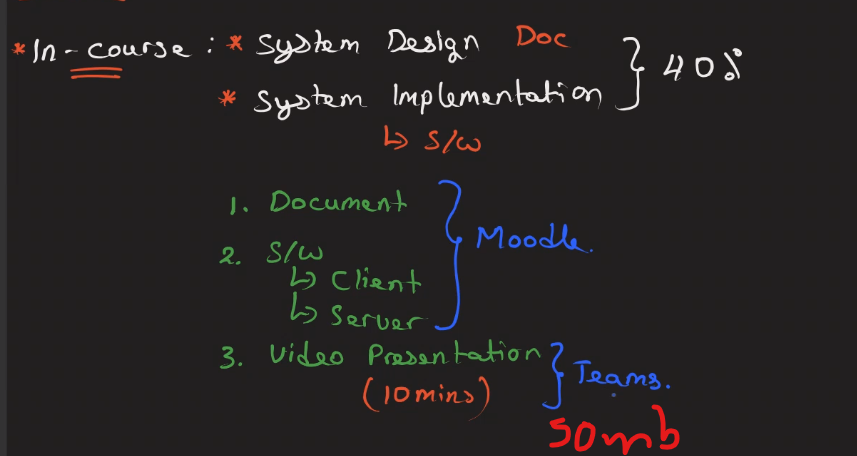 * In-course : * System Design Doc
* System Implementation } 40%
↳ S/W
1. Document
2. S/W
↳ Client
↳ Server
} Moodle.
3. Video Presentation
(10mins)
} Teams.
50mb